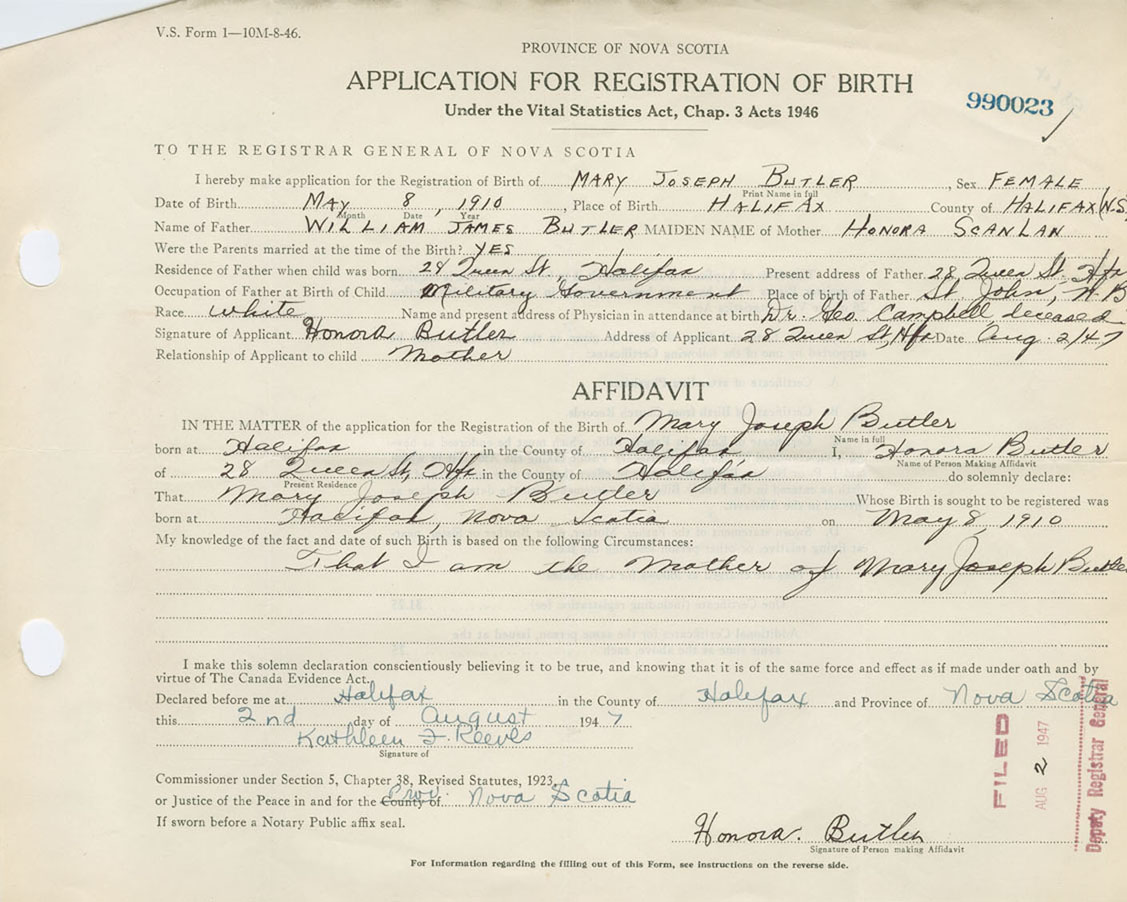 V.S. Form 1—10M-8-46.
PROVINCE OF NOVA SCOTIA
APPLICATION FOR REGISTRATION OF BIRTH
990023
Under the Vital Statistics Act, Chap. 3 Acts 1946
TO THE REGISTRAR GENERAL OF NOVA SCOTIA
I hereby make application for the Registration of Birth of MARY JOSEPH BUTLER, Sex FEMALE
Print Name in full
Date of Birth MAY 8, 1910, Place of Birth HALIFAX County of HALIFAX N.S.
Month Date Year
Name of Father WILLIAM JAMES BUTLER MAIDEN NAME of Mother HONORA SCANLAN
Were the Parents married at the time of the Birth? YES
Residence of Father when child was born 28 Queen St., Halifax Present address of Father 28 Queen St. Hfx
Occupation of Father at Birth of Child Military Government Place of birth of Father St. John, N.B
Race white Name and present address of Physician in attendance at birth Dr. Geo. Campbell, deceased
Signature of Applicant Honora Butler Address of Applicant 28 Queen St, Hfx Date Aug. 2/47
Relationship of Applicant to child Mother
AFFIDAVIT
IN THE MATTER of the application for the Registration of the Birth of Mary Joseph Butler
Name in full
born at Halifax in the County of Halifax I, Honora Butler
Name of Person Making Affidavit
of 28 Queen St, Hfx in the County of Halifax do solemnly declare:
Present Residence
That Mary Joseph Butler Whose Birth is sought to be registered was
born at Halifax, Nova Scotia on May 8, 1910
My knowledge of the fact and date of such Birth is based on the following Circumstances:
That I am the Mother of Mary Joseph Butler
I make this solemn declaration conscientiously believing it to be true, and knowing that it is of the same force and effect as if made under oath and by
virtue of The Canada Evidence Act.
Declared before me at Halifax in the County of Halifax and Province of Nova Scotia
this 2nd day of August 1947
Kathleen F. Reeves
Signature of
Commissioner under Section 5, Chapter 38, Revised Statutes, 1923,
or Justice of the Peace in and for the County of Prov. Nova Scotia
If sworn before a Notary Public affix seal.
Honora Butler
Signature of Person making Affidavit
FILED
AUG 2 1947
Deputy Registrar General
For Information regarding the filling out of this Form, see instructions on the reverse side.